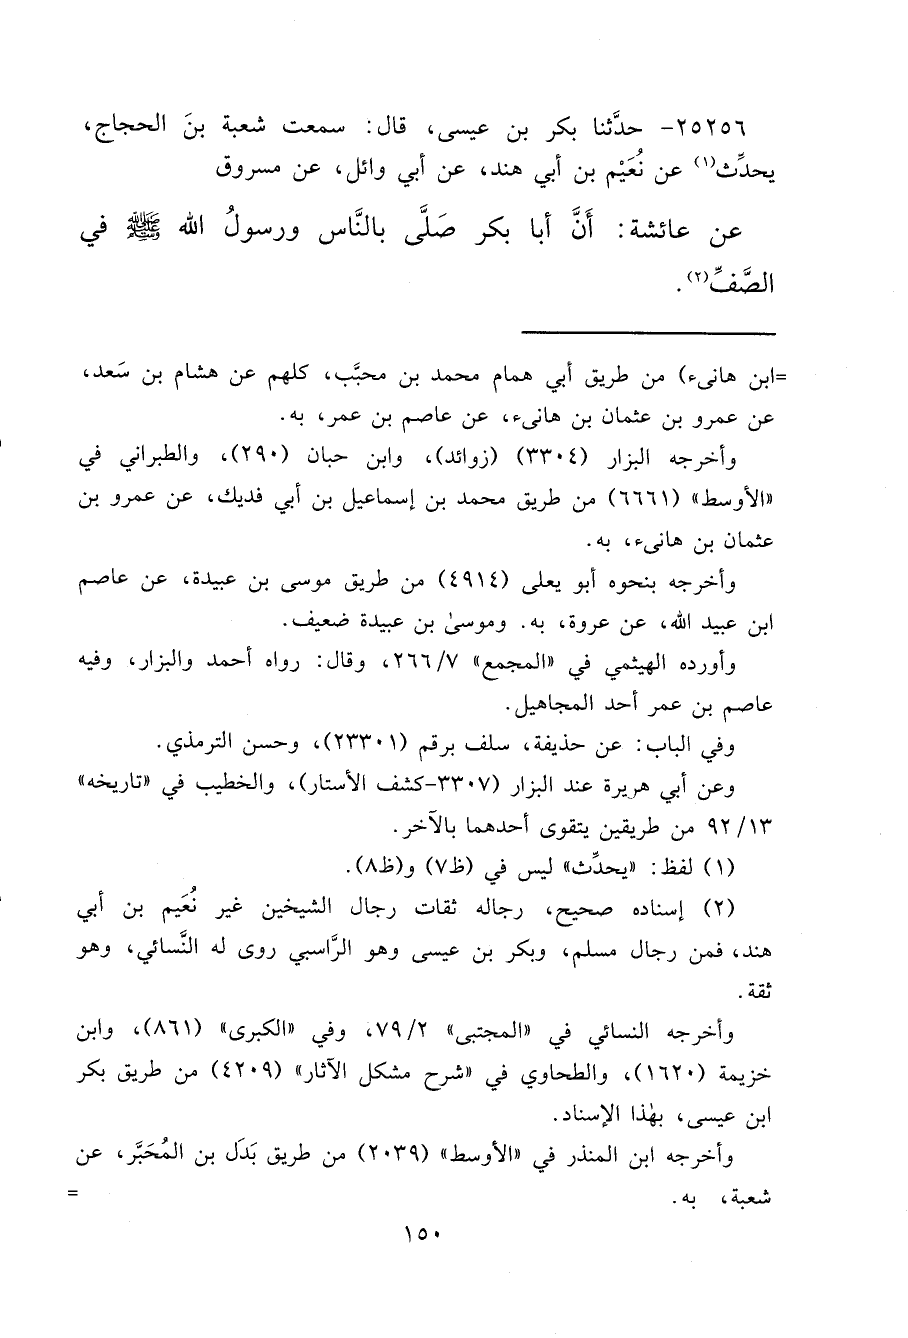 ٢٥٢٥٦- حدَّثنا بكر بن عيسى، قال: سمعت شعبة بنَ الحجاج،
يحدِّث(١) عن نُعَيْم بن أبي هند، عن أبي وائل، عن مسروق
عن عائشة: أَنَّ أبا بكر صَلَّى بالنَّاس ورسولُ الله ﷺ في
الصَّفِّ(٢).
=ابن هانىء) من طريق أبي همام محمد بن محبَّب، كلهم عن هشام بن سَعد،
عن عمرو بن عثمان بن هانىء، عن عاصم بن عمر، به.
وأخرجه البزار (٣٣٠٤) (زوائد)، وابن حبان (٢٩٠)، والطبراني في
«الأوسط» (٦٦٦١) من طريق محمد بن إسماعيل بن أبي فديك، عن عمرو بن
عثمان بن هانىء، به.
وأخرجه بنحوه أبو يعلى (٤٩١٤) من طريق موسى بن عبيدة، عن عاصم
ابن عبيد الله، عن عروة، به. وموسىٰ بن عبيدة ضعيف.
وأورده الهيثمي في «المجمع» ٢٦٦/٧، وقال: رواه أحمد والبزار، وفيه
عاصم بن عمر أحد المجاهيل.
وفي الباب: عن حذيفة، سلف برقم (٢٣٣٠١)، وحسن الترمذي.
وعن أبي هريرة عند البزار (٣٣٠٧-كشف الأستار)، والخطيب في «تاريخه»
٩٢/١٣ من طريقين يتقوى أحدهما بالآخر.
(١) لفظ: «يحدِّث» ليس في (ظ٧) و(ظ٨).
(٢) إسناده صحيح، رجاله ثقات رجال الشيخين غير نُعَيم بن أبي
هند، فمن رجال مسلم، وبكر بن عيسى وهو الرَّاسبي روى له النَّسائي، وهو
ثقة.
وأخرجه النسائي في «المجتبى» ٧٩/٢، وفي «الكبرى» (٨٦١)، وابن
خزيمة (١٦٢٠)، والطحاوي في «شرح مشكل الآثار» (٤٢٠٩) من طريق بكر
ابن عيسى، بهٰذا الإسناد.
وأخرجه ابن المنذر في «الأوسط» (٢٠٣٩) من طريق بَدَل بن المُحَبَّر، عن
شعبة، به. =
١٥٠